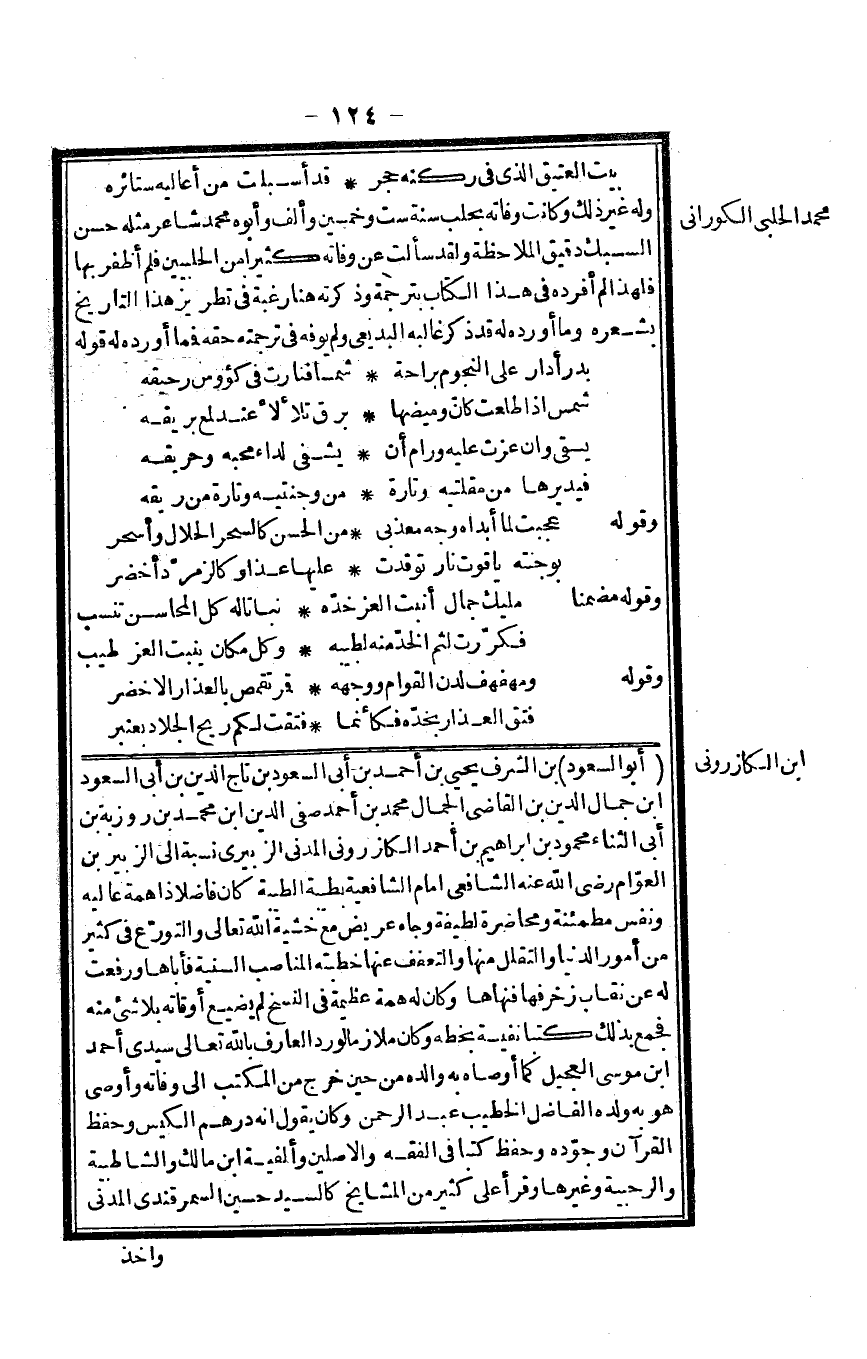 - ١٢٤ -
بيت العتيق الذى فى ركنه حجر * قد أسبلت من أعاليه ستائره
محمد الحلبى الكورانى
وله غير ذلك وكانت وفاته بحلب سنة ست وخمسين وألف وأبوه محمد شاعر مثله حسن
السبك دقيق الملاحظة ولقد سألت عن وفاته كثيرا من الحلبيين فلم أظفر بها
فلهذا لم أفرده فى هذا الكتاب بترجمة وذكرته هنا رغبة فى تطريز هذا التاريخ
بشعره وما أورده له قد ذكر غالبه البديعى ولم يوفه فى ترجمته حقه فما أورده له قوله
بدر أدار على النجوم براحة * شمسا فنارت فى كؤوس رحيقه
شمس اذا طلعت كان وميضها * برق تلألأ عند لمع بريقه
يسقى وان عزت عليه ورام أن * يشفى لداء محبه وحريقه
فيديرها من مقلتيه وتارة * من وجنتيه وتارة من ريقه
وقوله عجبت لما أبداه وجه معذبى * من الحسن كالسحر الحلال وأسحر
بوجنته ياقوت نار توقدت * عليها عذار كالزمرّد أخضر
وقوله مضمنا مليك جمال أنبت العز خدّه * نباتاله كل المحاسن تنسب
فكرّرت لثم الخدّ منه لطيبه * وكل مكان ينبت العز طيب
وقوله ومهفهف لدن القوام ووجهه * قر تقمص بالعذار الاخضر
فتق العذار بخدّه فكأنما * فتقت لكم ريح الجلاد بعنبر
ابن الكازرونى
(أبو السعود) بن الشرف يحيى بن أحمد بن أبى السعود بن تاج الدين بن أبى السعود
ابن جمال الدين بن القاضى الجمال محمد بن أحمد صفى الدين ابن محمد بن روزبة بن
أبى الثناء محمود بن ابراهيم بن أحمد الكازرونى المدنى الزبيرى نسبة الى الزبير بن
العوّام رضى الله عنه الشافعى امام الشافعية بطيبة الطيبة كان فاضلا ذا همة عاليه
ونفس مطمئنة ومحاضرة لطيفة وجاه عريض مع خشية الله تعالى والتورّع فى كثير
من أمور الدنيا والتقلل منها والتعفف عنها خطبته المناصب السنية فأباها ورفعت
له عن نقاب زخرفها فنهاها وكان له همة عظيمة فى النسخ لم يضيع أوقاته بلا شئ منه
فجمع بذلك كتبا نفيسة بخطه وكان ملازما لورد العارف بالله تعالى سيدى أحمد
ابن موسى العجيل كما أوصاه به والده من حين خرج من المكتب الى وفاته وأوصى
هو به ولده الفاضل الخطيب عبد الرحمن وكان يقول انه درهم الكيس وحفظ
القرآن وجوّده وحفظ كتبا فى الفقه والاصلين وألفية ابن مالك والشاطبية
والرحبية وغيرها وقرأ على كثير من المشايخ كالسيد حسين السمرقندى المدنى
واخذ